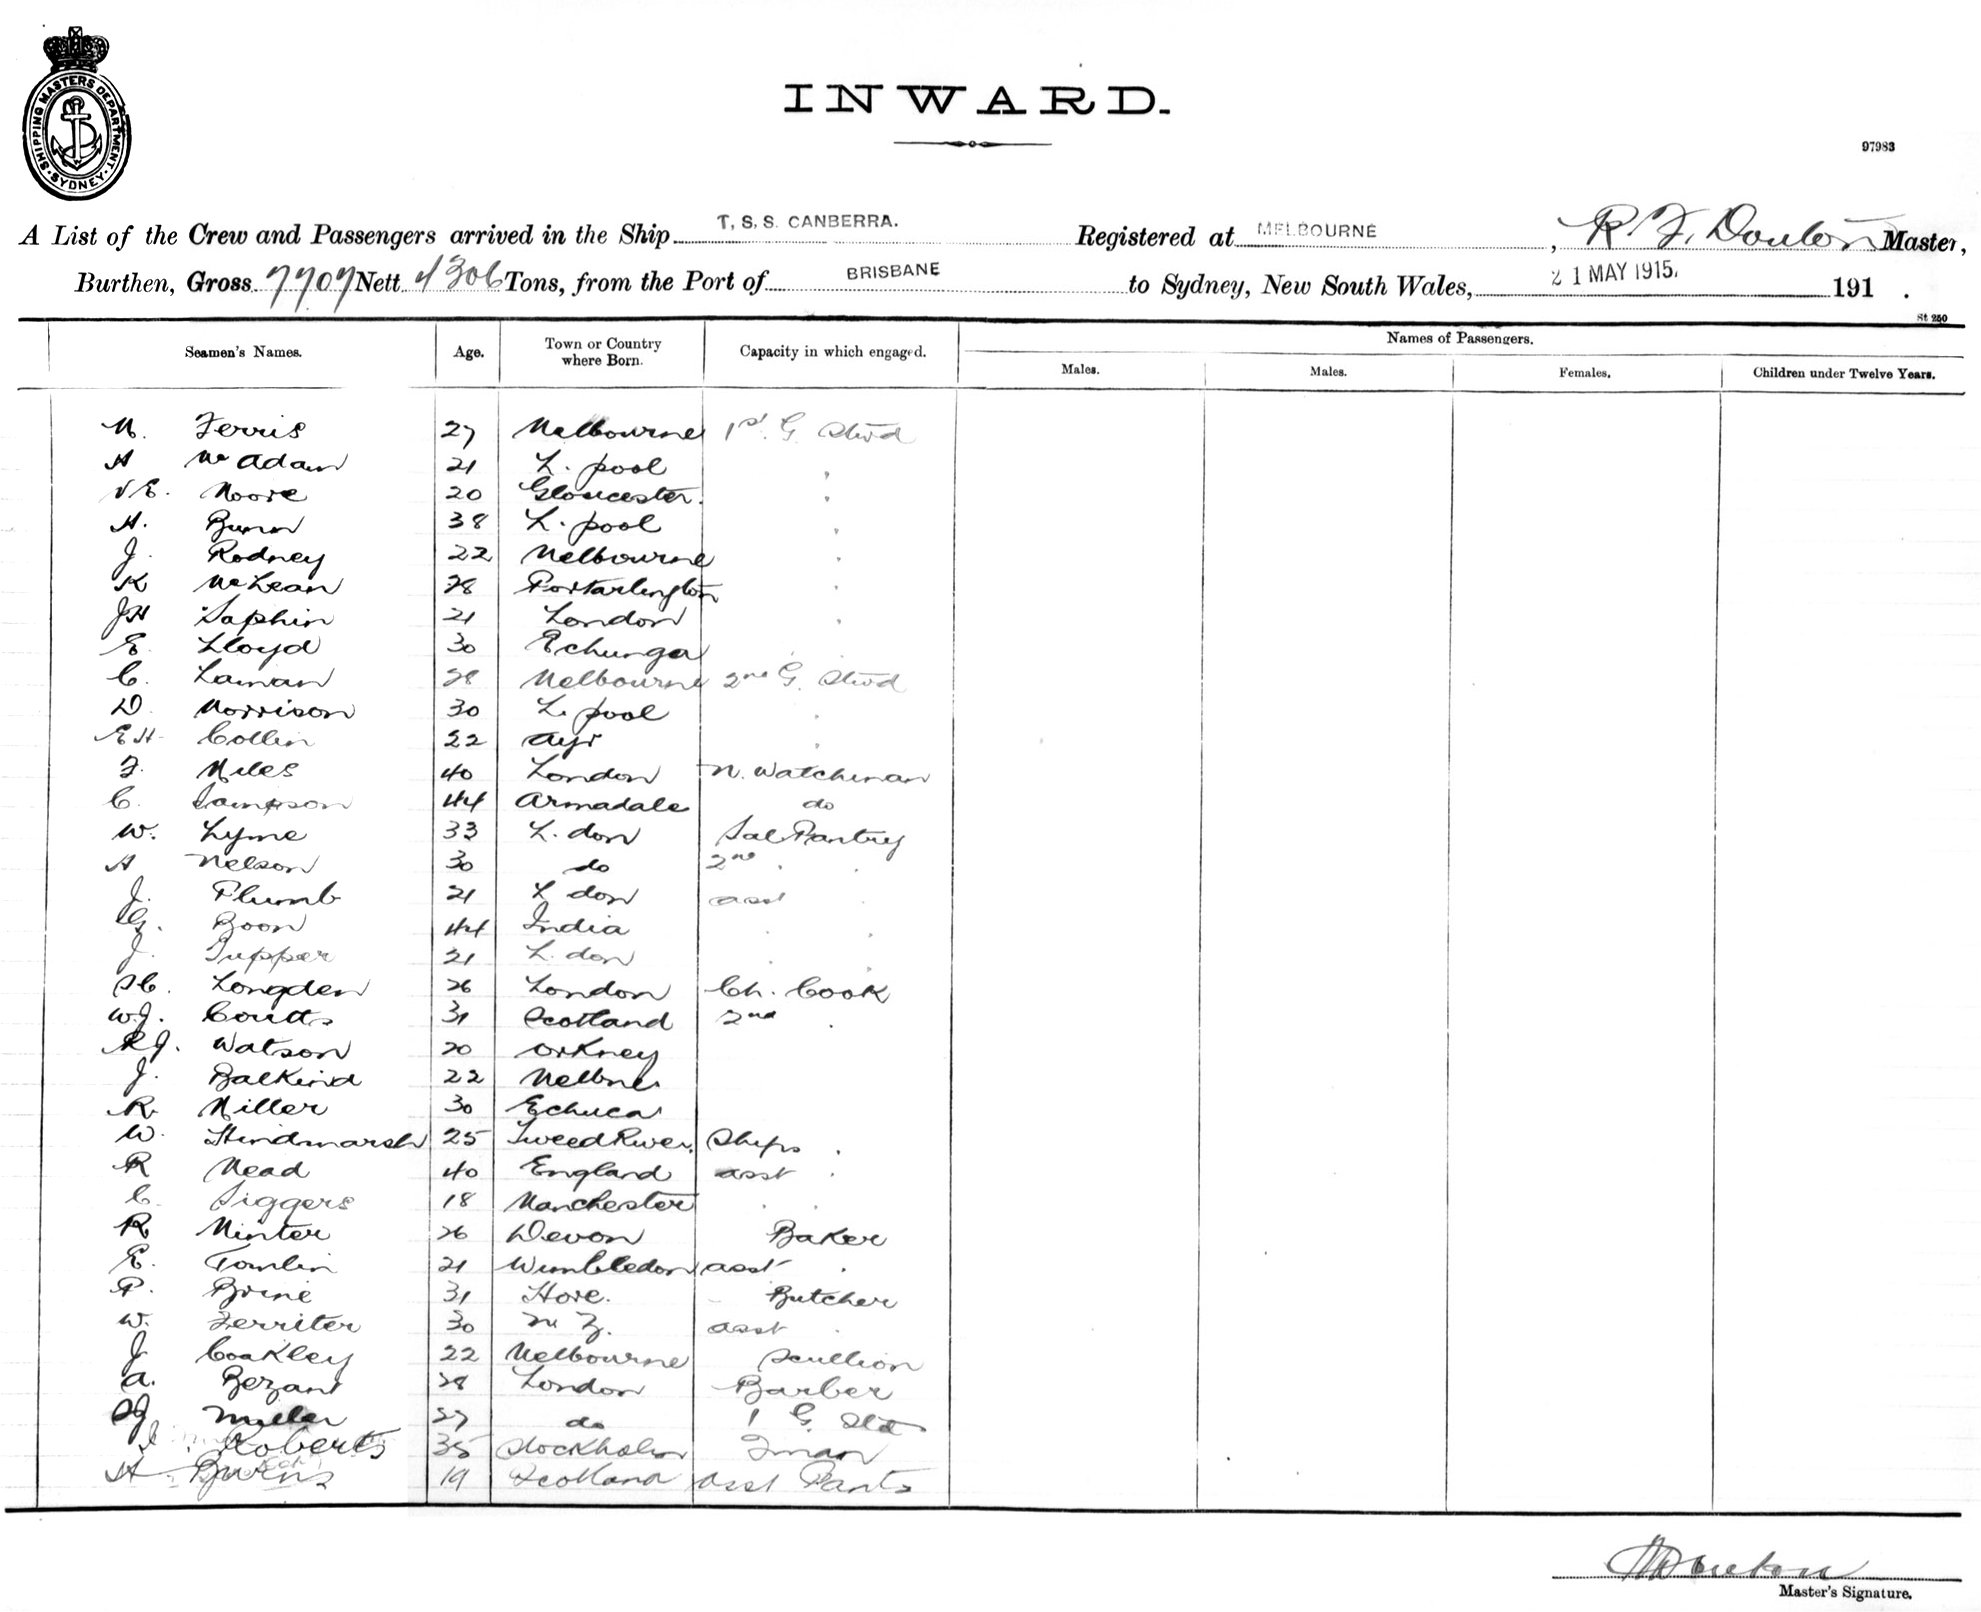 SHIPPING MASTERS DEPARTMENT
SYDNEY
INWARD.
97983
A List of the Crew and Passengers arrived in the Ship T. S. S. CANBERRA. Registered at MELBOURNE, R. F. Doulton Master,
Burthen, Gross 7707 Nett 4306 Tons, from the Port of BRISBANE to Sydney, New South Wales, 21 MAY 1915. 191 .
St 250
Seamen's Names. Age. Town or Country where Born. Capacity in which engaged. Names of Passengers.
Males. Males. Females. Children under Twelve Years.
N. Ferris 27 Melbourne 1st G. Stwd
A Mc Adam 21 L. pool "
V E. Moore 20 Gloucester. "
H. Bunn 38 L. pool "
J. Rodney 22 Melbourne "
K McLean 28 Portarlington "
JH Saphin 21 London "
E. Lloyd 30 Echunga
C. Laman 28 Melbourne 2nd G. Stwd
D. Morrison 30 L. pool "
EH Collin 22 Ayr "
F. Miles 40 London N. Watchman
C. Sampson 44 Armadale do
W. Lyme 33 L. don Sal Pantry
A Nelson 30 do 2nd "
J. Plumb 21 L don asst "
G. Boon 44 India " "
J. Tupper 21 L. don " "
Longden 26 London Ch. Cook
W.J. Coutts 31 Scotland 2nd "
R.J. Watson 20 Orkney
J. Balkind 22 Melbne
R. Miller 30 Echuca
W. Hindmarsh 25 Tweed River. Ships "
R Mead 40 England asst "
C. Siggers 18 Manchester " "
R Minter 26 Devon Baker
E. Tomlin 21 Wimbledon asst "
P. Brine 31 Hove. Butcher
W. Ferriter 30 N Z. asst "
J Coakley 22 Melbourne Scullion
A. Bezant 28 London Barber
Miller 27 do 1 G. Std
Roberts 35 Stockholm Fman
A Burns 19 Scotland asst Pants
Doulton
Master's Signature.